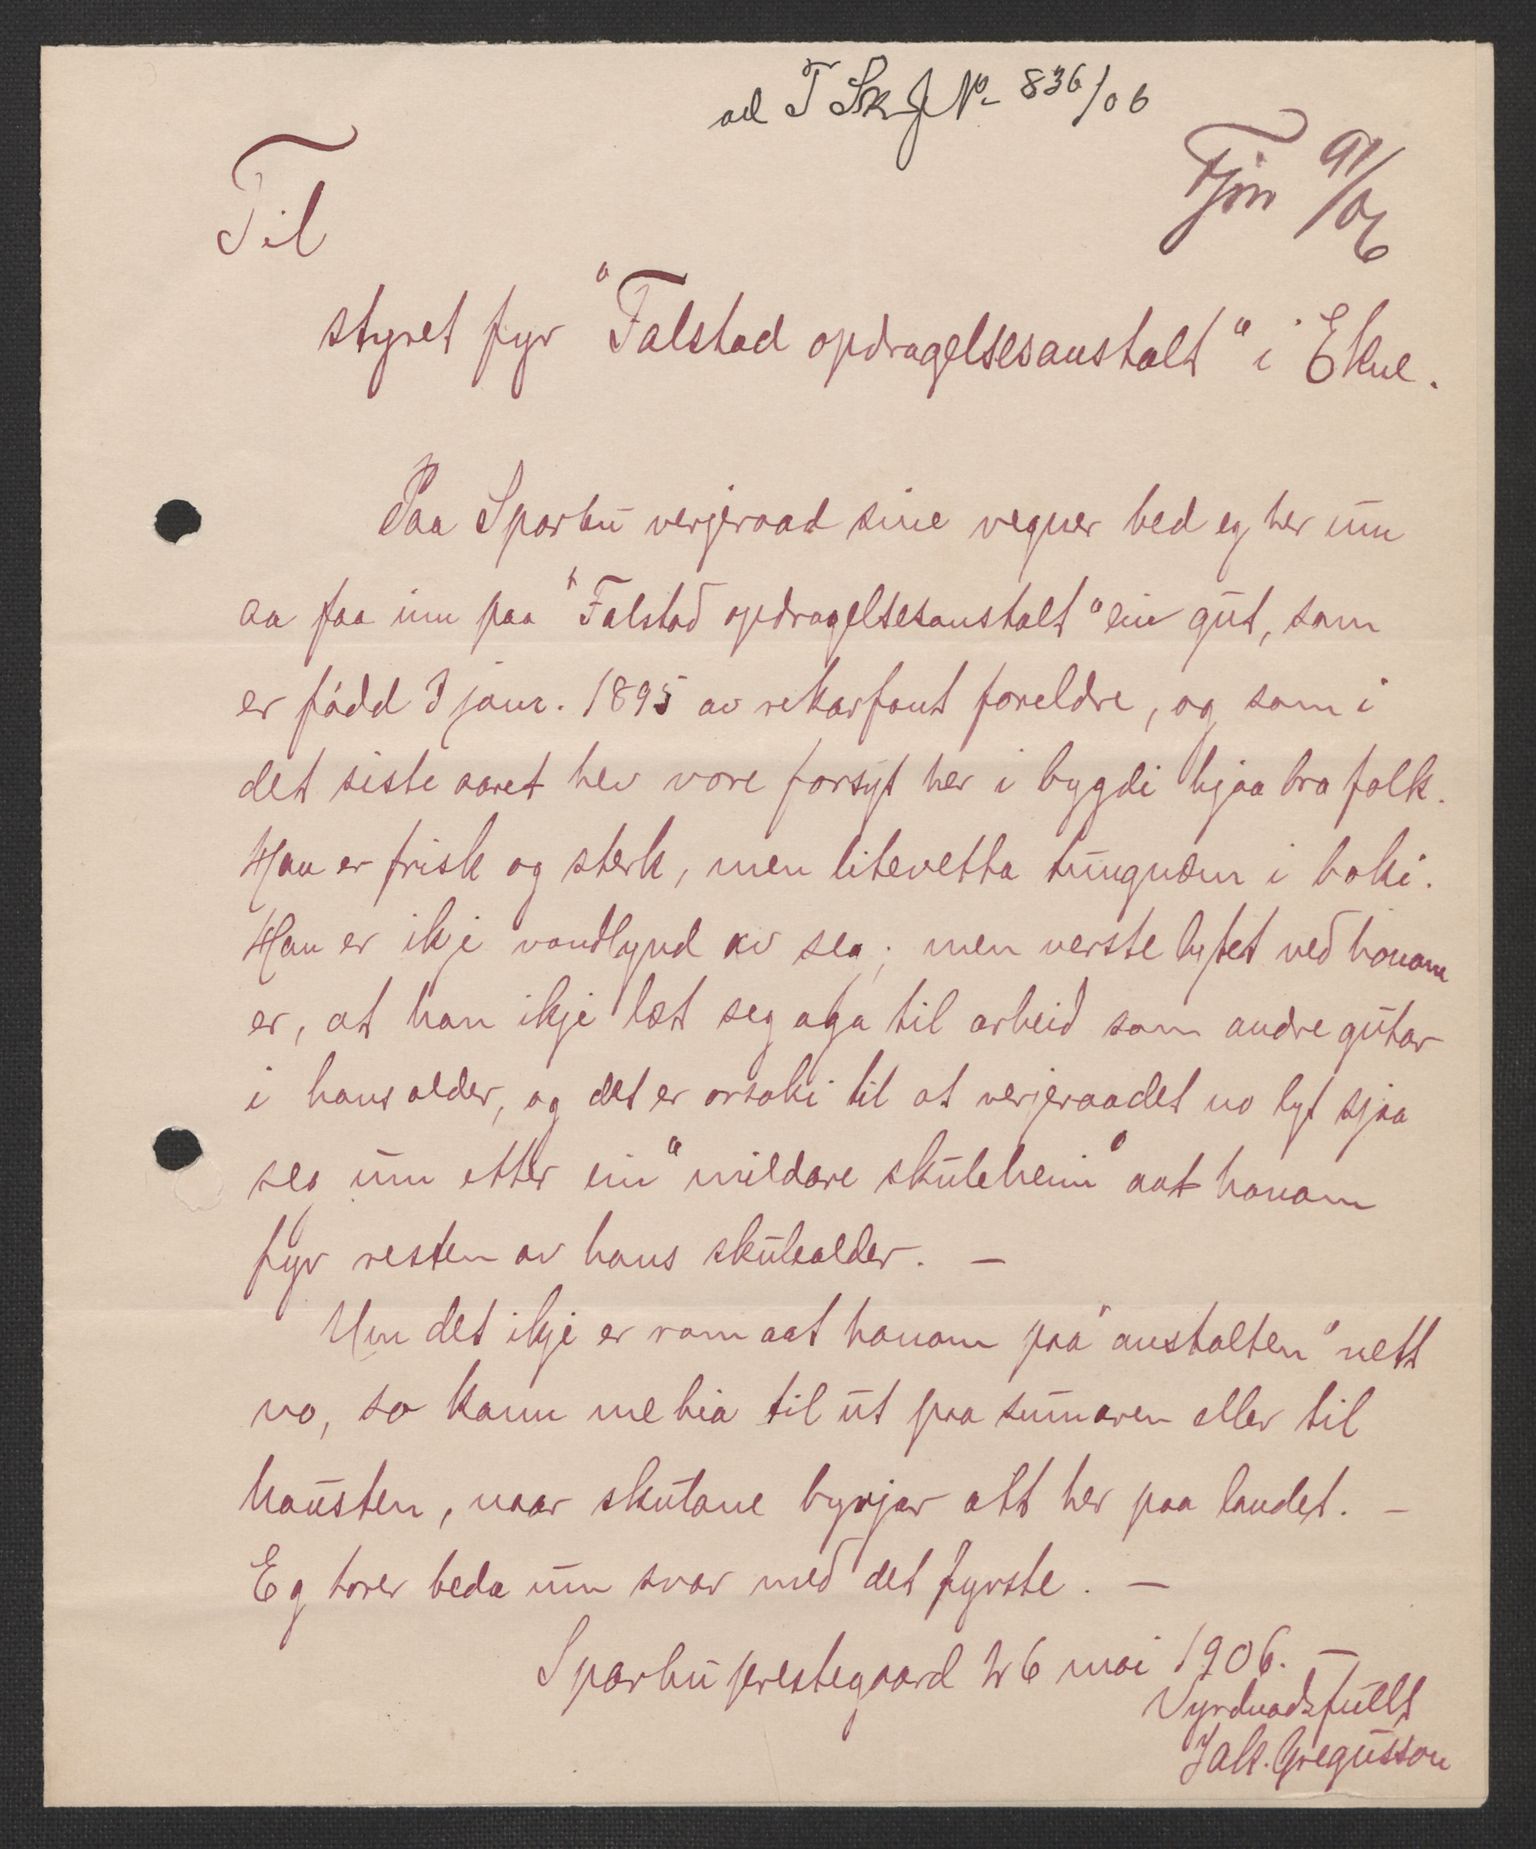 ad T Sk J No 836/06
Fjn 91/06
Til
styret fyr "Falstad opdragelsesanstalt" i Ekne.
Paa Sparbu verjeraad sine vegner bed eg her um
aa faa inn paa "Falstad opdragelsesanstalt" ein gut, som
er fødd 3 janr. 1895 av rekarfant foreldre, og som i
det siste aaret hev vore forsytt her i bygdi hjaa bra folk.
Han er frisk og sterk, men litevetta tungnæm i boki.
Han er ikje vondlynd av seg; men verste lytet ved honom
er, at han ikje læt seg aga til arbeid som andre gutar
i hans alder, og det er orsaki til at verjeraadet no lyt sjaa
seg um etter ein "mildare skuleheim" aat honom
fyr resten av hans skulealder. —
Um det ikje er rom aat honom paa "anstalten" nett
no, so kann me bia til ut paa sumaren eller til
hausten, naar skulane byrjar att her paa landet. —
Eg torer beda um svar med det fyrste. —
Sparbu prestegaard 26 mai 1906. —
Vyrdnadsfullt
Jak. Gregusson